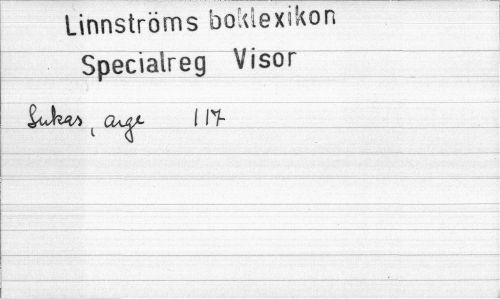 Linnströms boklexikon
Specialreg Visor
Lukas, arge 117